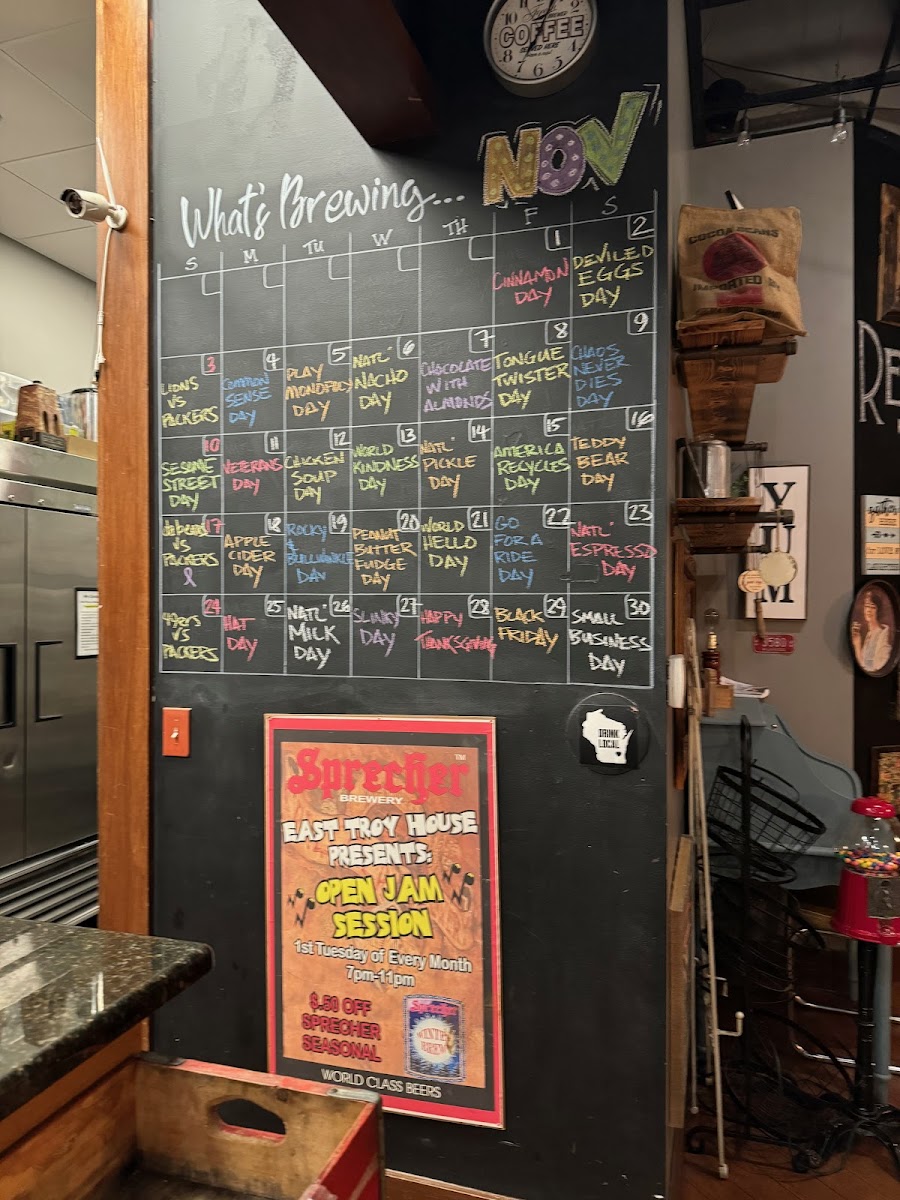 COFFEE
SERVED HERE
What's Brewing...
NOV
S M TU W TH F S
1
CINNAMON
DAY
2
DEVILED
EGGS
DAY
3
LIONS
VS
PACKERS
4
COMMON
SENSE
DAY
5
PLAY
MONOPOLY
DAY
6
NATL'
NACHO
DAY
7
CHOCOLATE
WITH
ALMONDS
8
TONGUE
TWISTER
DAY
9
CHAOS
NEVER
DIES
DAY
10
SESAME
STREET
DAY
11
VETERANS
DAY
12
CHICKEN
SOUP
DAY
13
WORLD
KINDNESS
DAY
14
NATL'
PICKLE
DAY
15
AMERICA
RECYCLES
DAY
16
TEDDY
BEAR
DAY
17
VS
PACKERS
18
APPLE
CIDER
DAY
19
ROCKY
&
BULLWINKLE
DAY
20
PEANUT
BUTTER
FUDGE
DAY
21
WORLD
HELLO
DAY
22
GO
FOR A
RIDE
DAY
23
NATL'
ESPRESSO
DAY
24
49ers
VS
PACKERS
25
HAT
DAY
26
NATL'
MILK
DAY
27
SLINKY
DAY
28
HAPPY
THANKSGIVING
29
BLACK
FRIDAY
30
SMALL
BUSINESS
DAY
Sprecher™
BREWERY
EAST TROY HOUSE
PRESENTS:
OPEN JAM
SESSION
1st Tuesday of Every Month
7pm-11pm
$.50 OFF
SPRECHER
SEASONAL
Sprecher
WINTER
BREW
WORLD CLASS BEERS
DRINK
LOCAL
COCOA BEANS
IMPORTED BY
YUM
RE